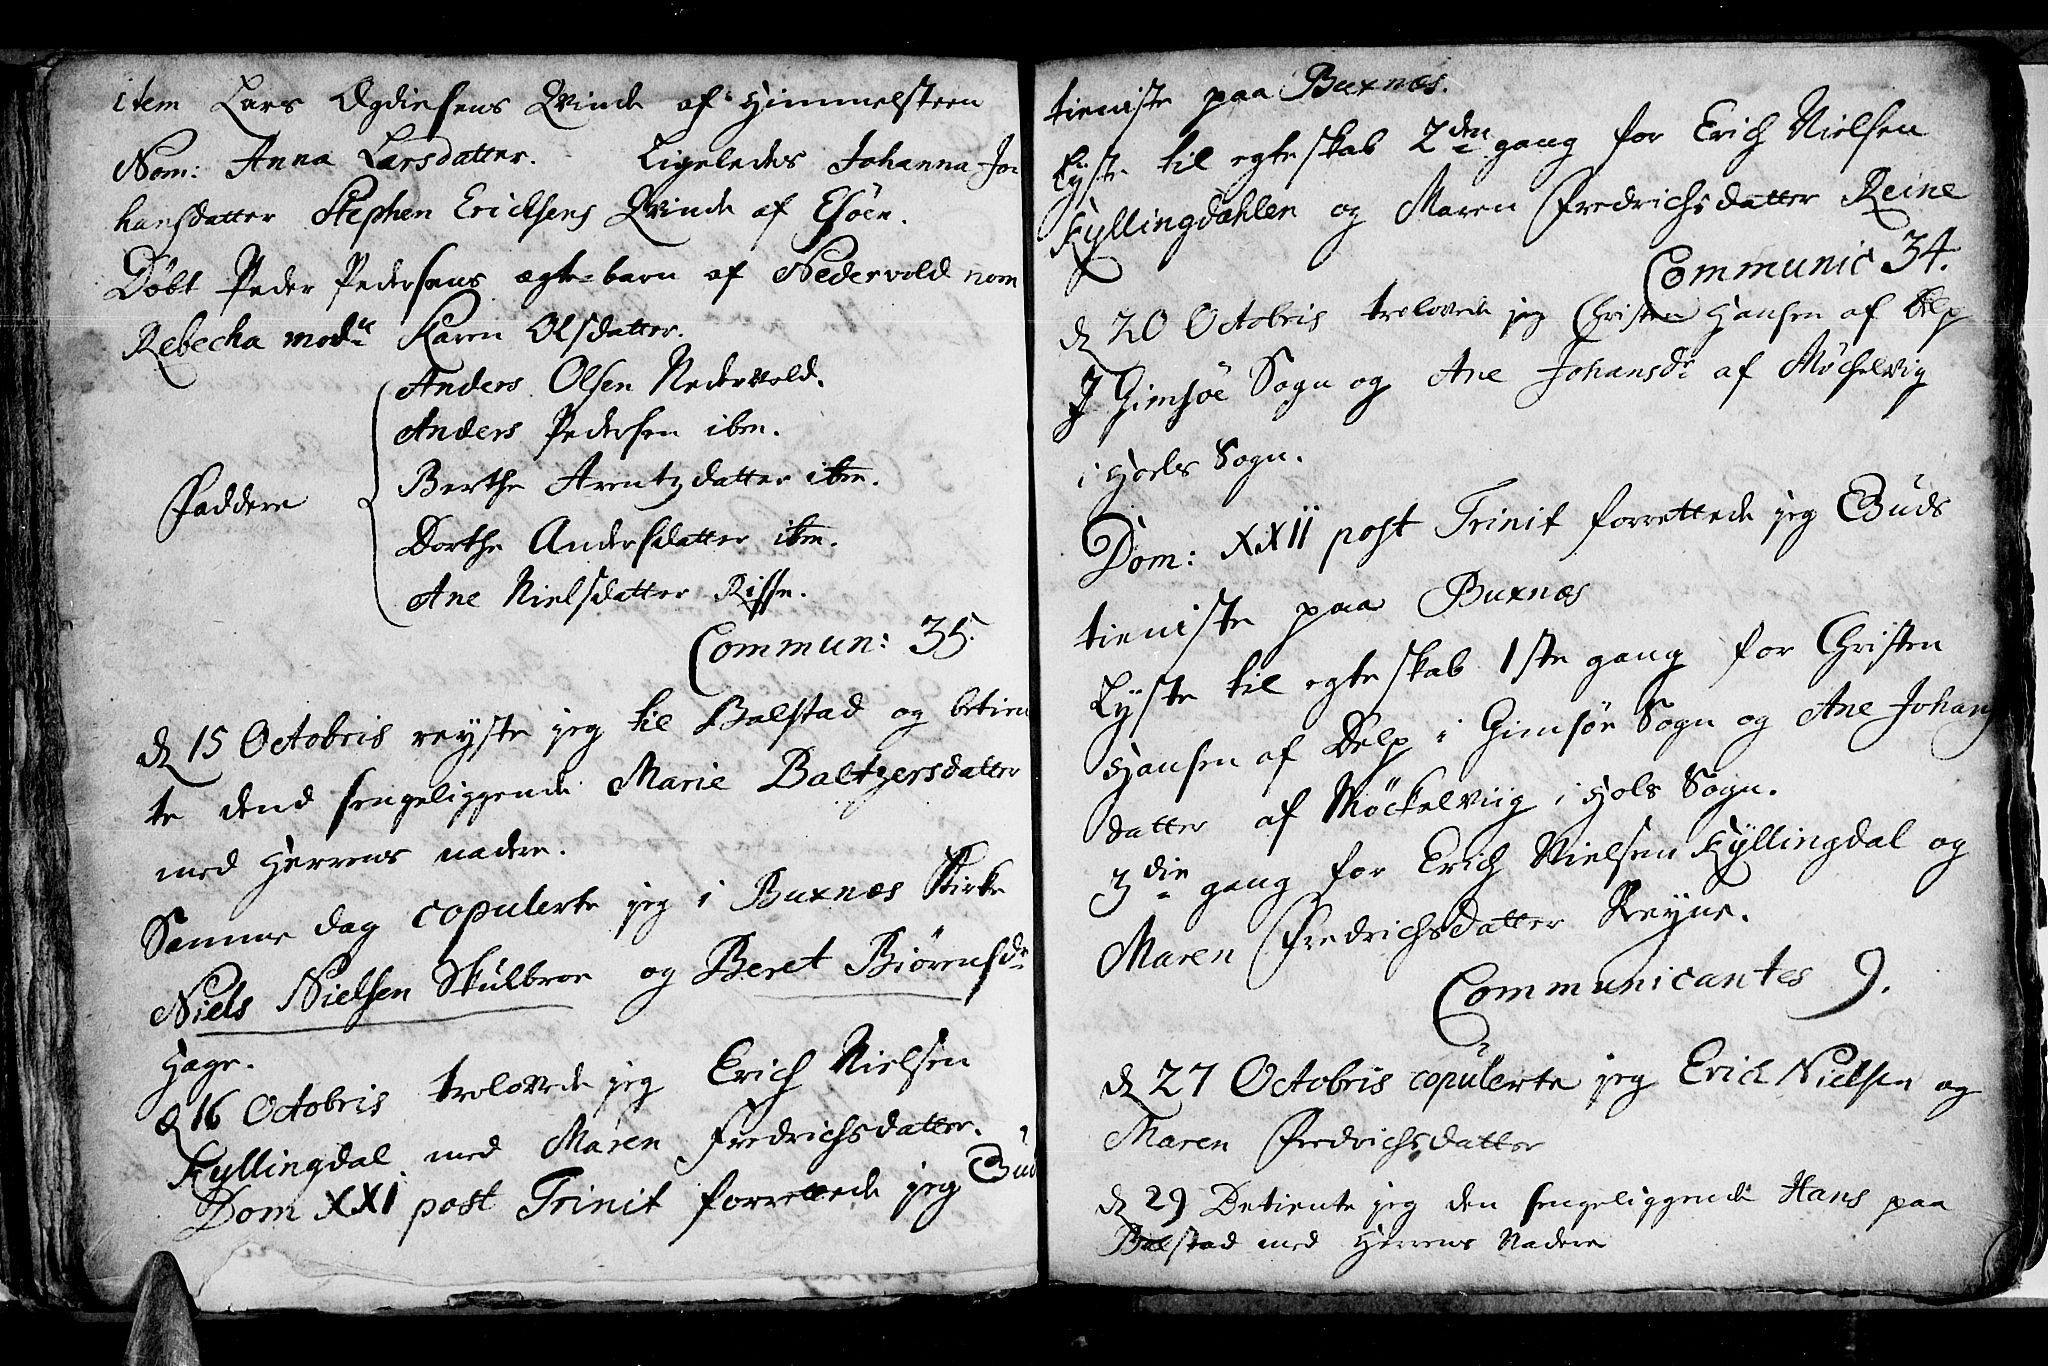 item Lars Ogdiesens Qvinde af Himmelsteen
Nom: Anna Larsdatter. Ligeledes Johanna Jo-
hansdatter Stephen Ericksens Qvinde af Esöen.
Döbt Peder Pedersens ægte-barn af Nedervold nom
Rebecha mod: Karen Olsdatter.
Anders Olsen Nedervold.
Anders Pedersen ibm.
Faddere
Berthe Arentzdatter ibm.
Dorthe Andersdatter ibm.
Ane Nielsdatter Risse.
Commun: 35.
d 15 Octobris reyste jeg til Balstad og betien
te dend sengeliggende Marie Baltzersdatter
med Herrens nadere.
Samme dag copulerte jeg i Buxnæs Kirke
Niels Nielsen Skulbroe og Beret Biörensdr
Hage.
d 16 Octobris trolovede jeg Erich Nielsen
Kyllingdal med Maren Fredrichsdatter.
Dom XXI post Trinit forrettede jeg Gud
tieniste paa Buxnæs.
Lyste til egteskab 2den gang for Erich Nielsen
Kyllingdahlen og Maren Fredrichsdatter Reine
Communic 34.
d 20 Octobris trolovede jeg Christen Hansen af Delp
I Gimsöe Sogn og Ane Johansdr af Möchelvig
i Hols Sogn.
Dom: XXII post Trinit forrettede jeg Guds
tieniste paa Buxnæs
Lyste til egteskab 1ste gang for Christen
Hansen af Delp i Gimsöe Sogn og Ane Johans
datter af Möckelviig i Hols Sogn.
3die gang for Erich Nielsen Kyllingdal og
Maren Fredrichsdatter Reyne.
Communicantes 9.
d 27 Octobris copulerte jeg Erick Nielsen og
Maren Fredrichsdatter
d 29 Betiente jeg den sengeliggende Hans paa
Balstad med Herrens Nadere